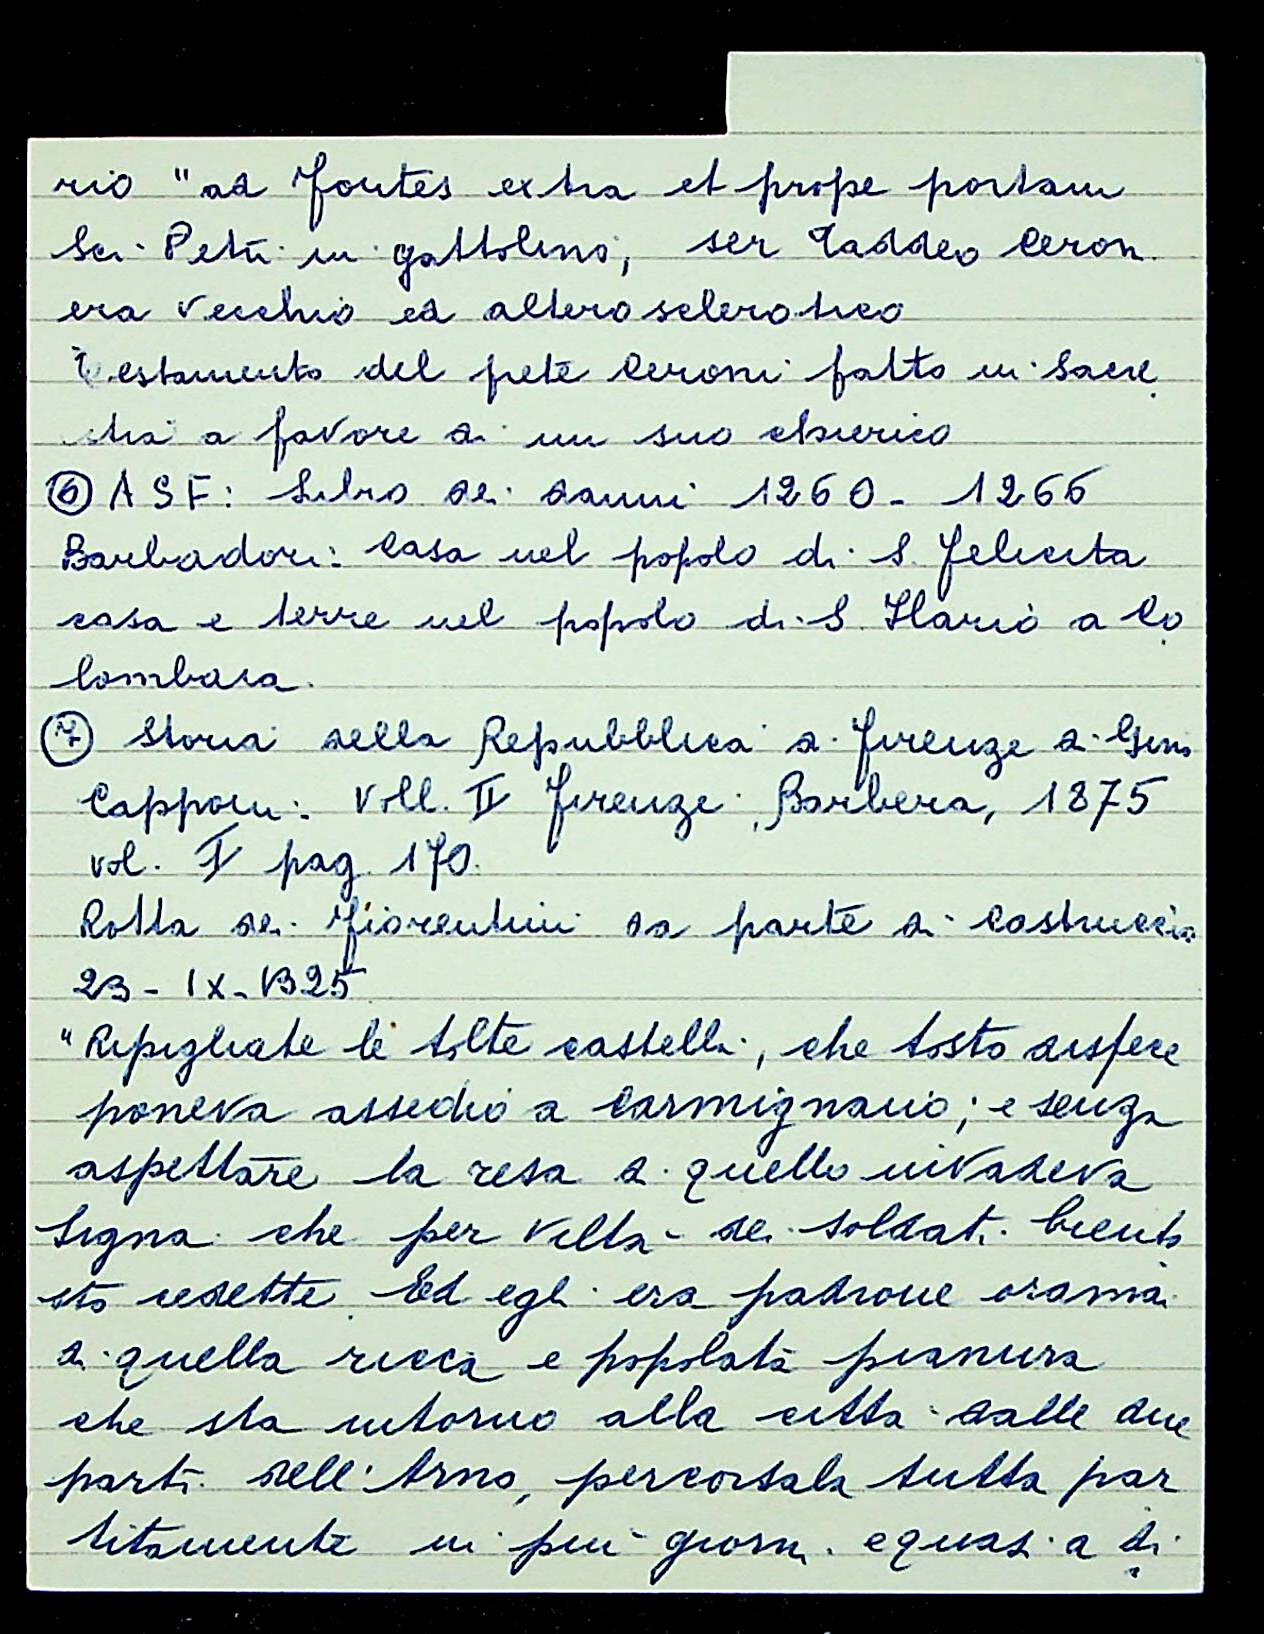 rio "ad fontes extra et prope portam
Sci Petri in gattolino, ser Taddeo Ceroni
era vecchio ed alterosclerotico
Testamento del prete Ceroni fatto in Sacre
stia a favore di un suo chierico
⑥ ASF: Libro dei danni 1260 - 1266
Barbadori: Casa nel popolo di S. Felicita
casa e terre nel popolo di S. Ilario a Co
lombaia.
⑦ Storia della Repubblica di Firenze di Gino
Capponi: Voll. II Firenze, Barbera, 1875
vol. I pag. 170.
Rotta dei Fiorentini da parte di Castruccio
23 - IX - 1325
"Ripigliate le tolte castella, che tosto disfece
poneva assedio a Carmignano; e senza
aspettare la resa di quello invadeva
Signa che per viltà dei soldati bento
sto cedette. Ed egli era padrone oramai
di quella ricca e popolata pianura
che sta intorno alla città dalle due
parti dell'Arno, percorsala tutta par
titamente in più giorni e quasi a di